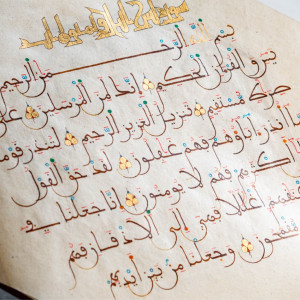 بسم الله الرحمن الرحيم
يس والقرآن الحكيم إنك لمن المرسلين على
صراط مستقيم تنزيل العزيز الرحيم لتنذر قوما
ما أنذر آباؤهم فهم غافلون لقد حق القول
أكثرهم فهم لا يؤمنون إنا جعلنا في
أعناقهم أغلالا فهي إلى الأذقان فهم
مقمحون وجعلنا من بين أيديهم